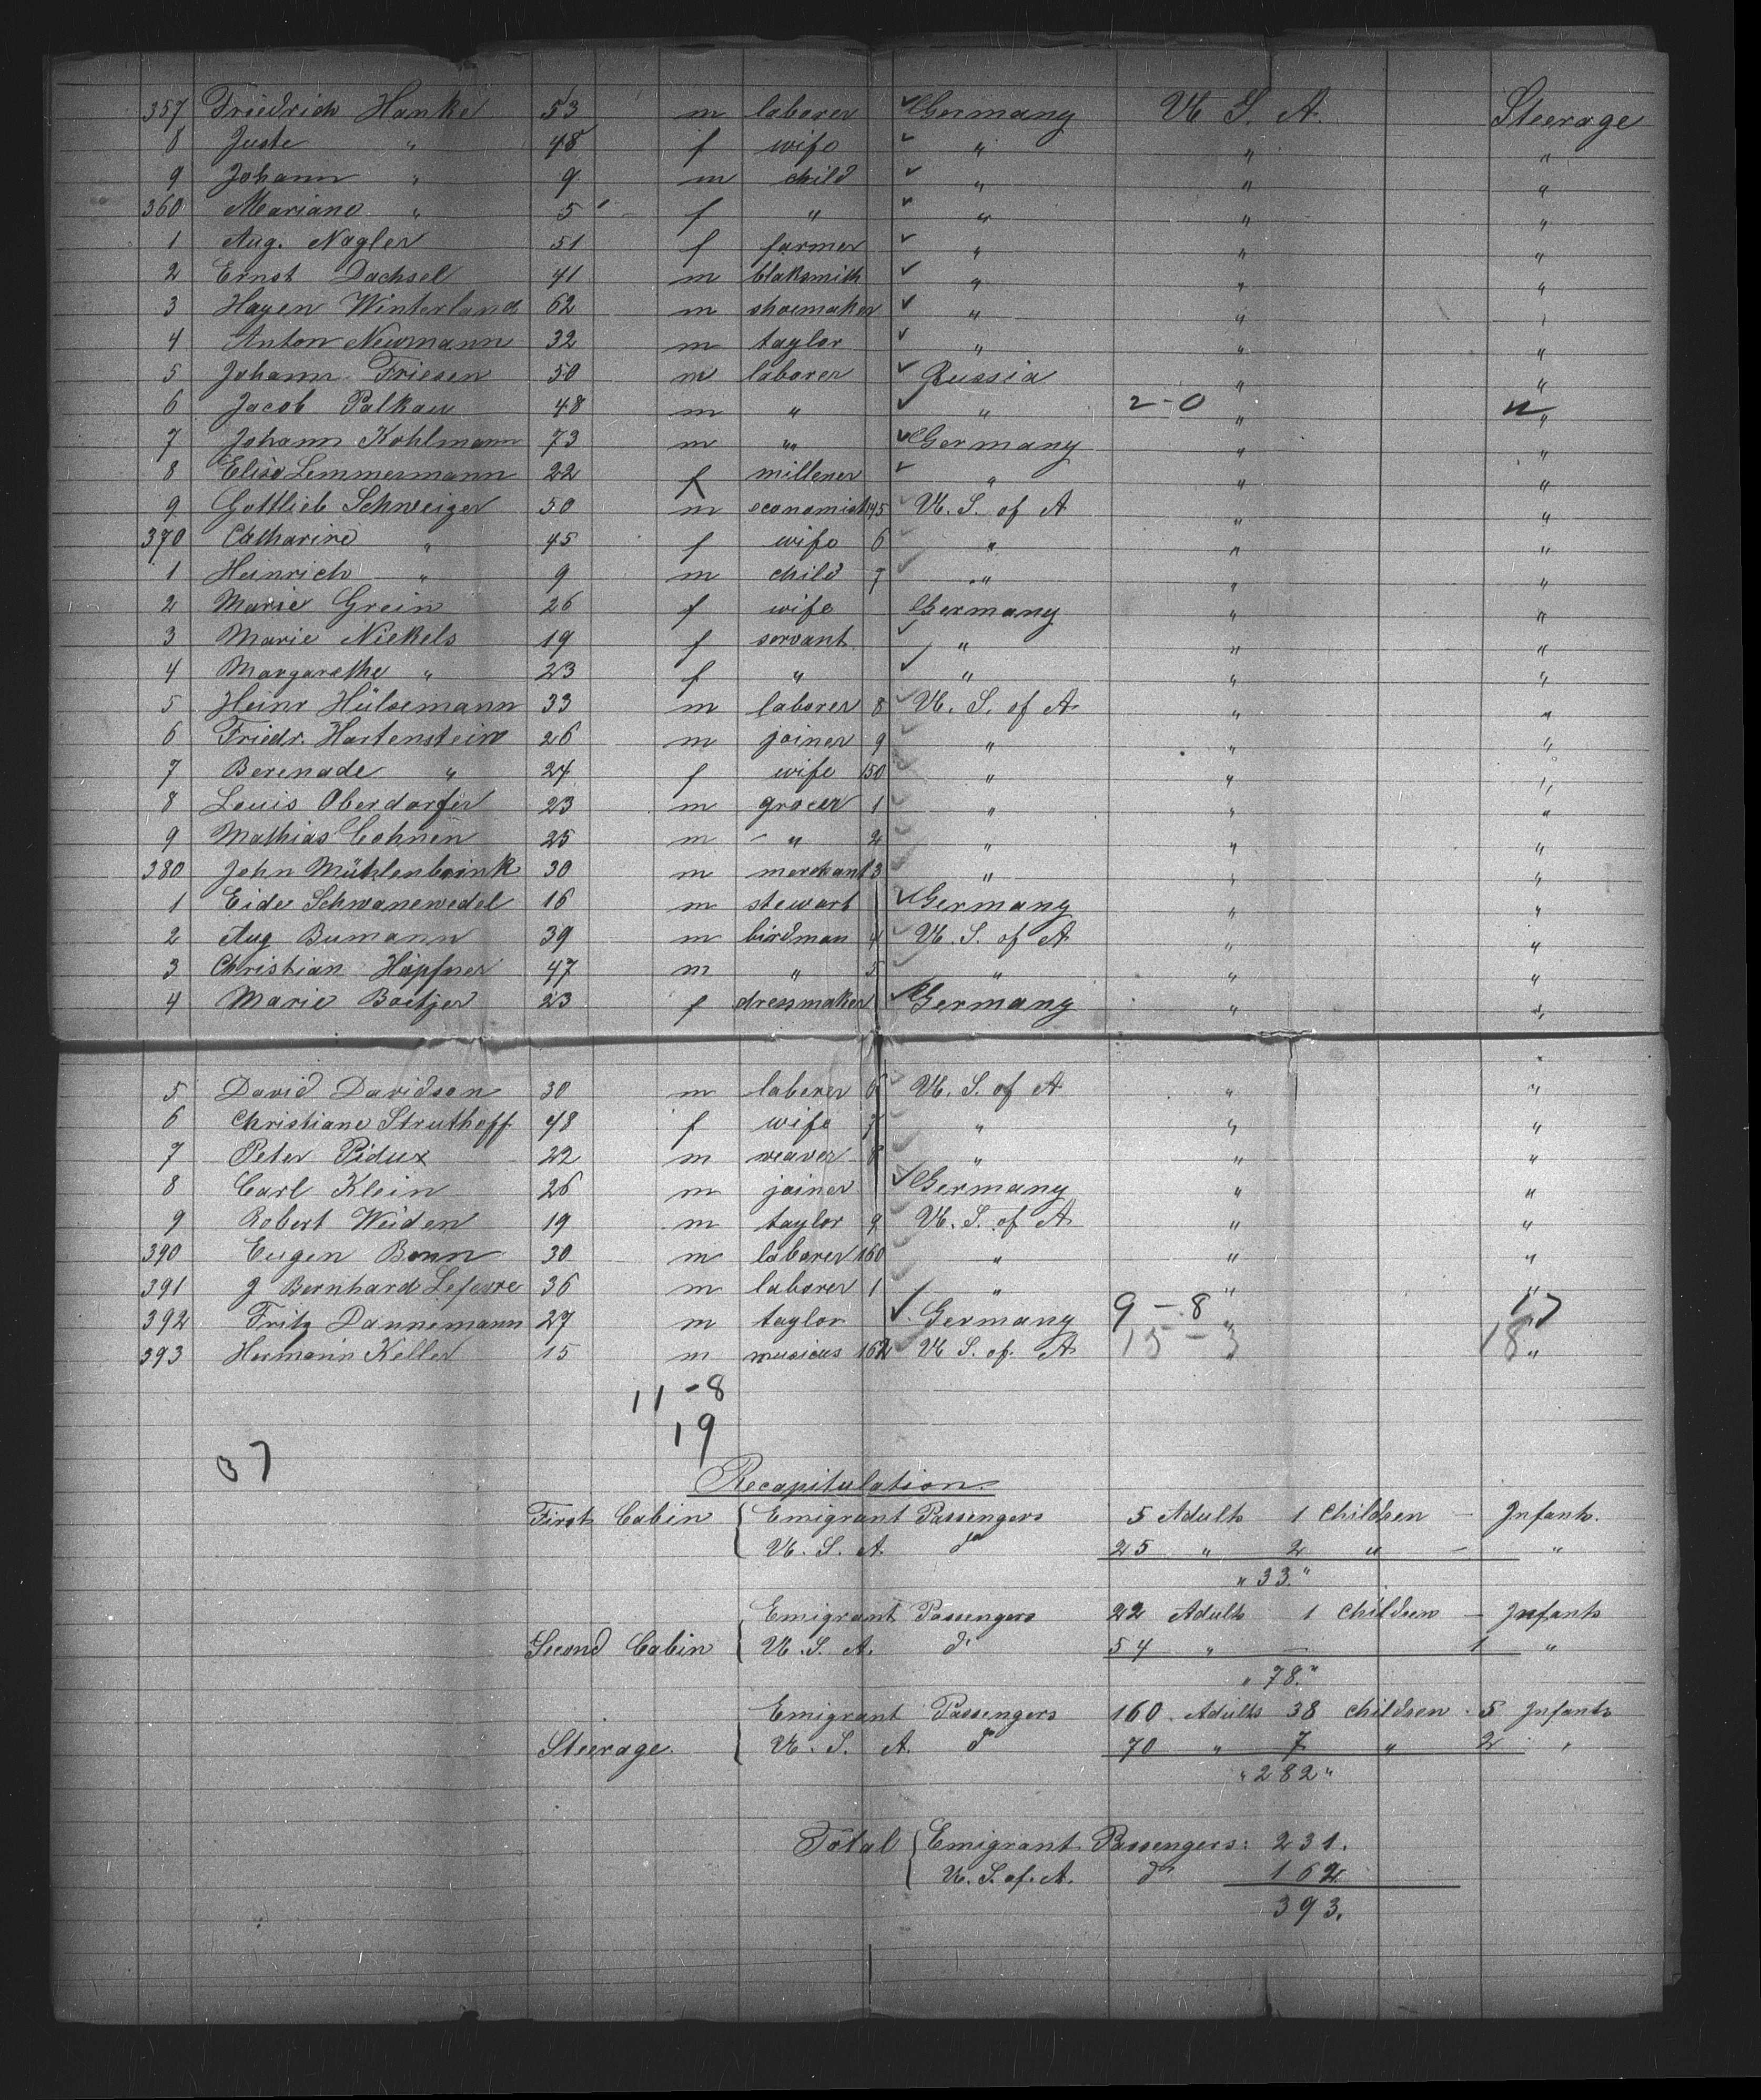 357 Friedrich Hanke 53 m laborer ✓ Germany U. S. A. Steerage
8 Juste " 48 f wife ✓ " " "
9 Johann " 9 m child ✓ " " "
360 Mariane " 5 f " ✓ " " "
1 Aug. Nagler 51 f farmer ✓ " " "
2 Ernst Dachsel 41 m blaksmith ✓ " " "
3 Hayen Winterland 62 m shoemaker ✓ " " "
4 Anton Newmann 32 m taylor ✓ " " "
5 Johann Friesen 50 m laborer ✓ Russia " "
6 Jacob Palkau 48 m " ✓ " 2-0 " "
7 Johann Kohlmann 73 m " ✓ Germany " "
8 Elisa Lemmermann 22 f millener ✓ " " "
9 Gottlieb Schweizer 50 m economist 145 ✓ U. S. of A " "
370 Catharine " 45 f wife 6 ✓ " " "
1 Heinrich " 9 m child 7 ✓ " " "
2 Marie Grein 26 f wife Germany " "
3 Marie Niekels 19 f servant ✓ " " "
4 Margarethe " 23 f " ✓ " " "
5 Heinr Hülsemann 33 m laborer 8 ✓ U. S. of A " "
6 Friedr. Hartenstein 26 m joiner 9 ✓ " " "
7 Berenade " 24 f wife 150 ✓ " " "
8 Louis Oberdorfer 23 m grocer 1 ✓ " " "
9 Mathias Cohnen 25 m " 2 ✓ " " "
380 John Mühlenbrink 30 m merchant 3 ✓ " " "
1 Eide Schwanewedel 16 m stewart ✓ Germany " "
2 Aug Bumann 39 m birdman 4 ✓ U. S. of A " "
3 Christian Höpfner 47 m " 5 ✓ " " "
4 Marie Boitjer 23 f dressmaker ✓ Germany " "
5 David Davidson 30 m laborer 6 ✓ U. S. of A " "
6 Christiane Struthoff 48 f wife 7 ✓ " " "
7 Peter Pidux 22 m weaver 8 ✓ " " "
8 Carl Klein 26 m joiner ✓ Germany " "
9 Robert Weiden 19 m taylor 9 U. S. of A " "
390 Eugen Bonn 30 m laborer 160 ✓ " " "
391 J Bernhard Lefevre 36 m laborer 1 ✓ " " "
392 Fritz Dannemann 27 m taylor ✓ Germany 9-8 " 17 "
393 Hermann Keller 15 m musicus 162 ✓ U. S. of A 15-3 " 18 "
11-8
19
37
Recapitulation.
First Cabin { Emigrant Passengers 5 Adults 1 Children - Infants.
U. S. A. do 25 " 2 " - "
" 33 "
Emigrant Passengers 22 Adults 1 Children - Infants
Second Cabin { U. S. A. do 54 " - 1 "
" 78 "
Emigrant Passengers 160 Adults 38 Children 5 Infants
Steerage. { U. S. A. do 70 " 7 " 2 "
" 282 "
Total { Emigrant Passengers: 231.
U. S. of A. do 162
393.